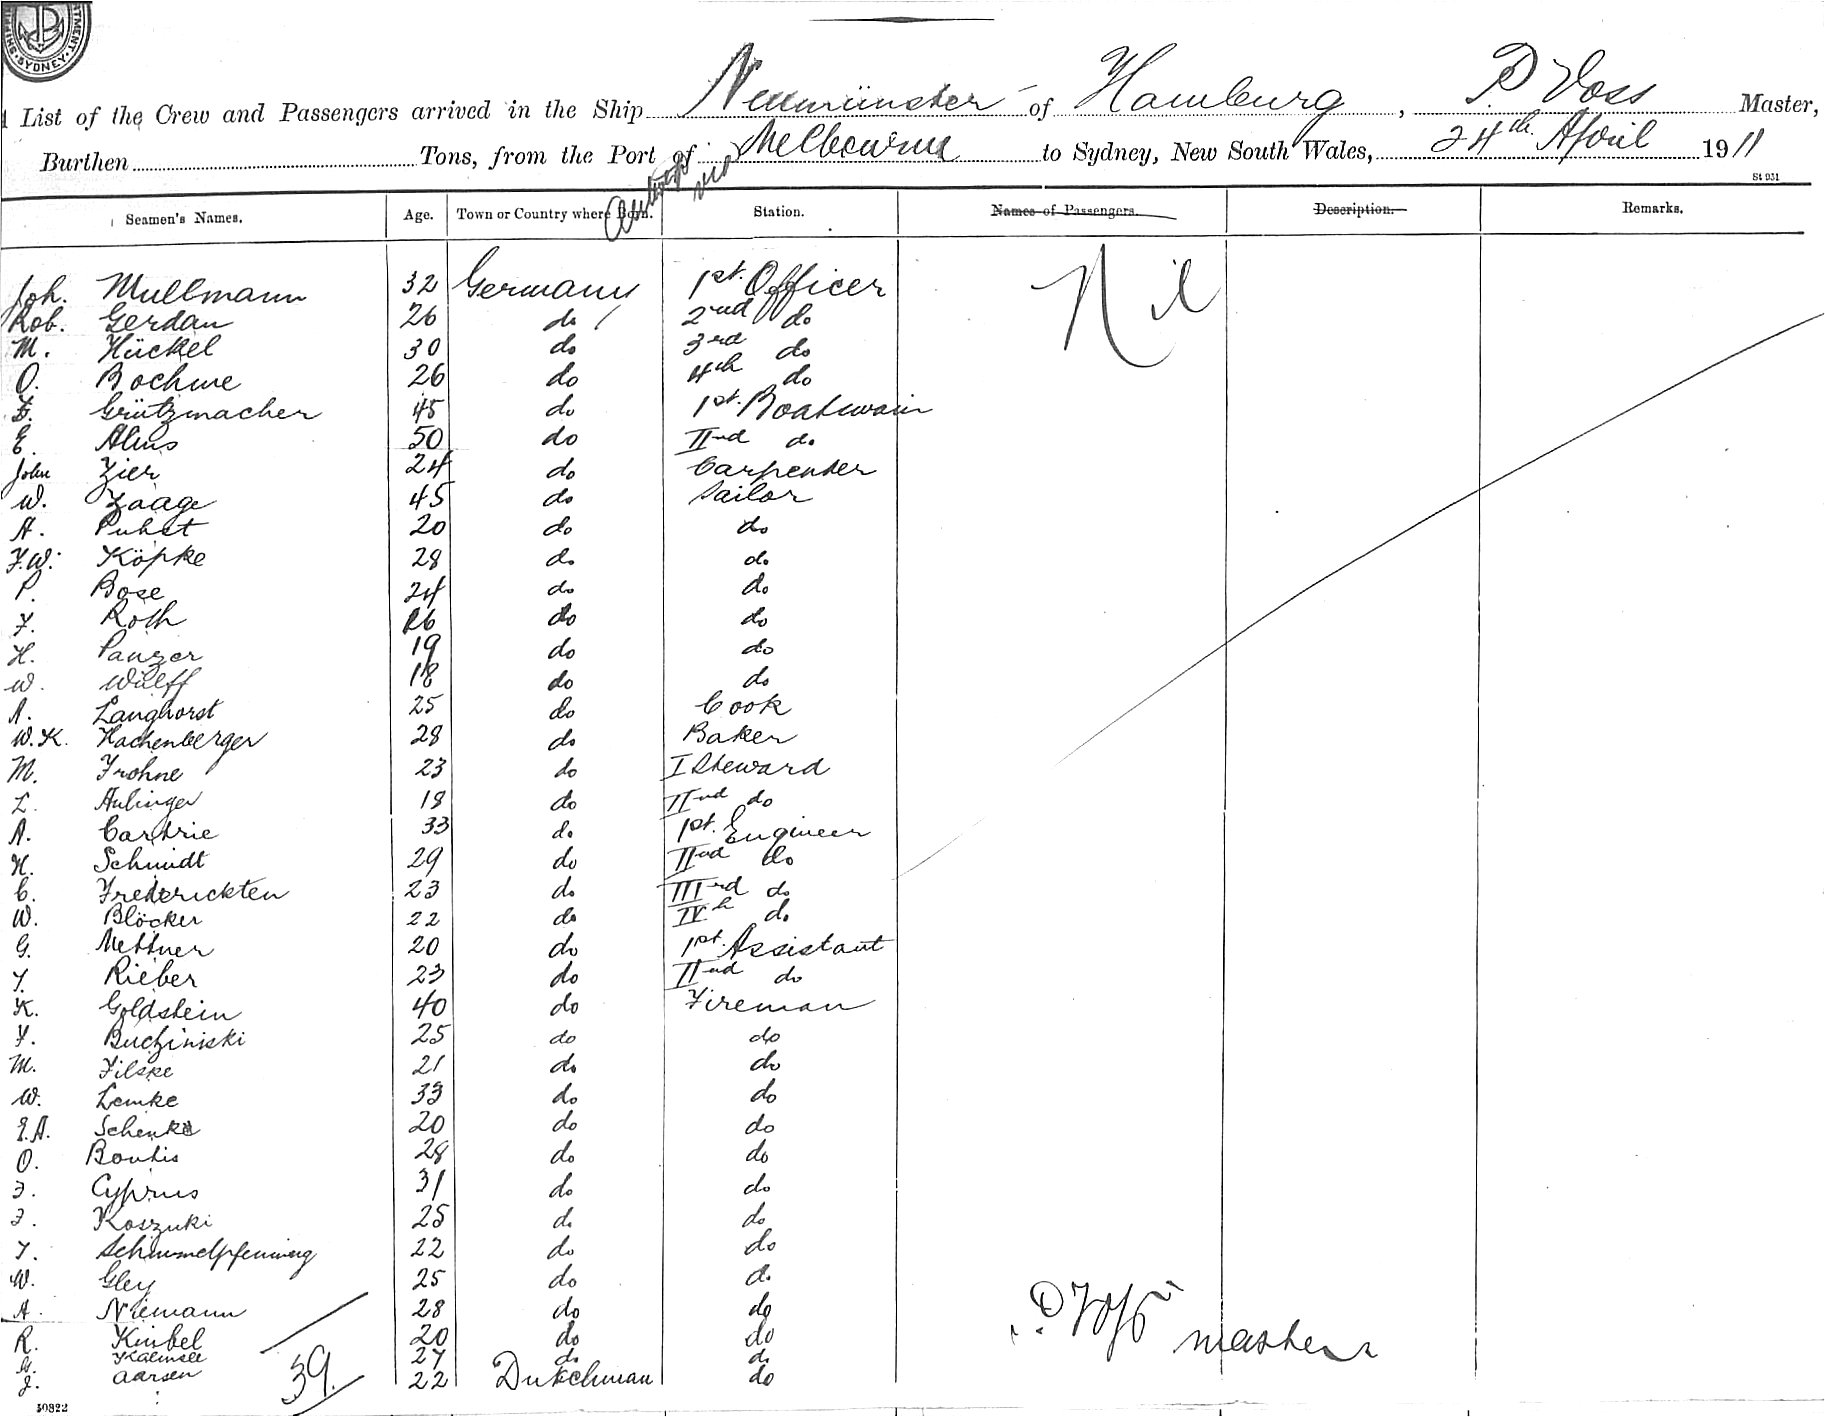 SYDNEY
List of the Crew and Passengers arrived in the Ship Neumünster of Hamburg, P Voss Master,
Burthen Tons, from the Port of Melbourne to Sydney, New South Wales, 24th April 1911
St 931
Seamen's Names. Age. Town or Country where Born. Station. Names of Passengers. Description. Remarks.
Joh. Mullmann 32 Germany 1st. Officer Nil
Rob. Gerdau 26 do 2nd do
M. Hückel 30 do 3rd do
O. Boehme 26 do 4th do
Grützmacher 45 do 1st. Boatswain
E. Ahns 50 do IInd do
John Zier 24 do Carpenter
W. Zaage 45 do Sailor
A. Pubst 20 do do
F.W. Köpke 28 do do
P. Bose 24 do do
F. Roth 26 do do
H. Panzer 19 do do
W. Wulff 18 do do
A. Langhorst 25 do Cook
W.K. Hachenberger 28 do Baker
M. Frohne 23 do I Steward
L. Aulinger 18 do IInd do
A. Cartrie 33 do 1st. Engineer
H. Schmidt 29 do IInd do
C. Frederickten 23 do IIIrd do
W. Blöcker 22 do IVth do
G. Mettner 20 do 1st. Assistant
F. Rieber 23 do IInd do
K. Goldstein 40 do Fireman
F. Buchiniski 25 do do
M. Filske 21 do do
W. Lemke 33 do do
E.A. Schenke 20 do do
O. Bontis 28 do do
J. Cyprus 31 do do
J. Koszuki 25 do do
F. Schimmelpfennig 22 do do
W. Gley 25 do do
A. Niemann 28 do do
R. Kinbel 20 do do
27 do do
J. Aarsen 22 Dutchman do
39.
P Voss master
50322